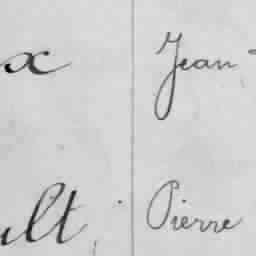 x Jean
ult Pierre